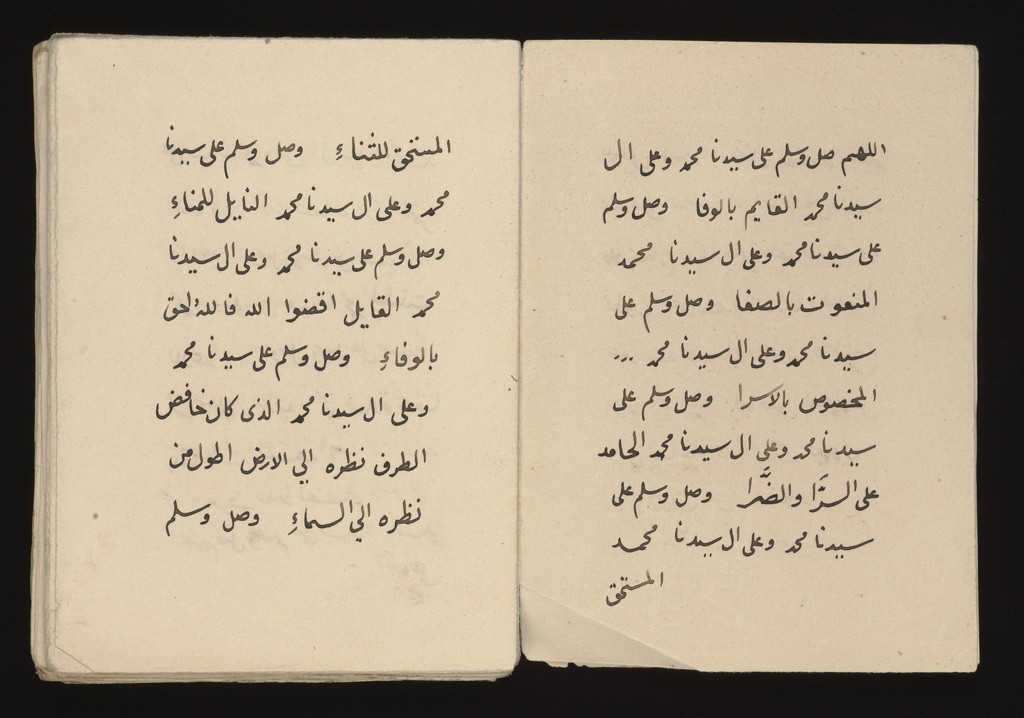 اللهم صل وسلم على سيدنا محمد وعلى ال
سيدنا محمد القايم بالوفا وصل وسلم
على سيدنا محمد وعلى ال سيدنا محمد
المنعوت بالصفا وصل وسلم على
سيدنا محمد وعلى ال سيدنا محمد ...
المخصوص بالاسرا وصل وسلم على
سيدنا محمد وعلى ال سيدنا محمد الحامد
على السرَّا والضَّرا وصل وسلم على
سيدنا محمد وعلى ال سيدنا محمد
المستحق
المستحق للثناءِ وصل وسلم على سيدنا
محمد وعلى ال سيدنا محمد النايل للمناءِ
وصل وسلم على سيدنا محمد وعلى ال سيدنا
محمد القايل اقضوا الله فالله احق
بالوفاءِ وصل وسلم على سيدنا محمد
وعلى ال سيدنا محمد الذى كان خافض
الطرف نظره الي الارض اطول من
نظره الي السماءِ وصل وسلم